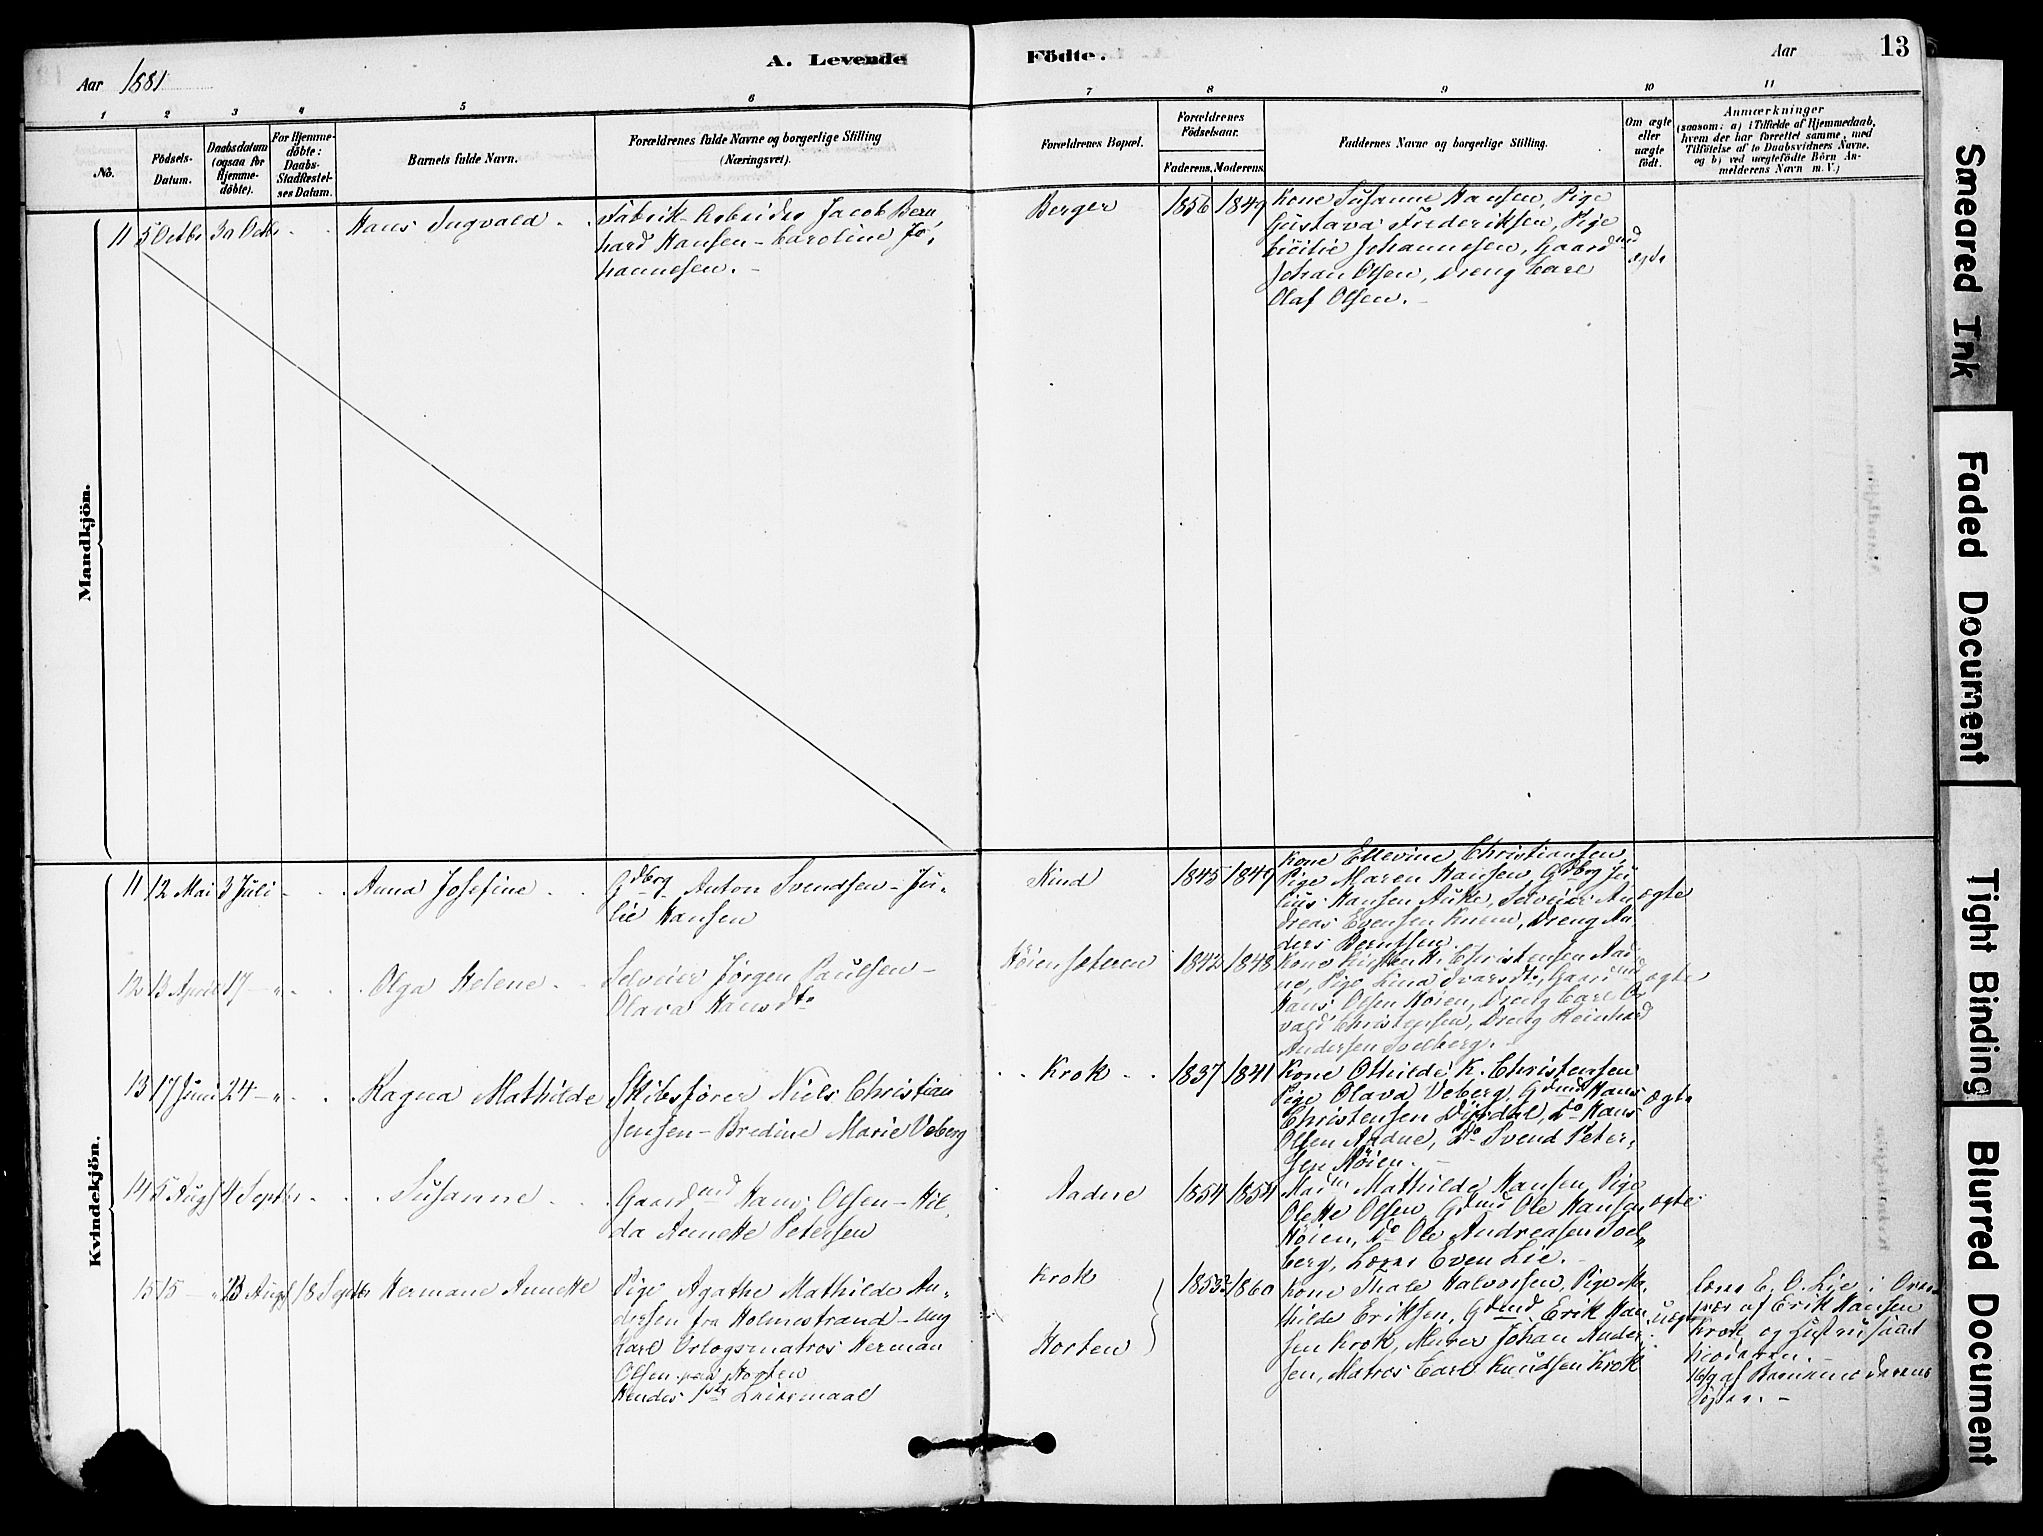 Aar 1881
A. Levende
Födte.
Aar
13
1 2 3 4 5 6 7 8 9 10 11
No.
Födsels-
Datum.
Daabsdatum
(ogsaa for
Hjemme-
döbte).
For Hjemme-
döbte:
Daabs-
Stadfæstel-
ses Datum.
Barnets fulde Navn.
Forældrenes fulde Navne og borgerlige Stilling
(Næringsvei).
Forældrenes Bopæl.
Forældrenes
Födselsaar.
Faderens. Moderens.
Faddernes Navne og borgerlige Stilling.
Om ægte
eller
uægte
födt.
Anmærkninger
(saasom: a) i Tilfælde af Hjemmedaab,
hvem der har forrettet samme, med
Tilföielse af to Daabsvidners Navne.
og b) ved uægtefödte Börn An-
melderens Navn m. V.)
Mandkjön.
11 5 Octbr 30 Octbr - - Hans Ingvald -
Fabrik-Arbeider Jacob Bern
hard Hansen - Caroline Jo-
hannesen. -
Berger
1856 1849
Kone Susanne Hansen, Pige
Gustava Frederiksen, Pige
Cicilie Johannesen, Gaardmd
Johan Olsen, Dreng Carl
Olaf Olsen. -
ægte
Kvindekjön.
11 12 Mai 3 Juli - - Anna Josefine -
Gdbrg Anton Svendsen - Ju-
lie Hansen
Kind
1845 1849
Kone Ellevine Christiansen,
Pige Maren Hansen, Gdbrg Ju-
lius Hansen Selveier An
dreas Evensen Dreng An-
ders Berntsen.
ægte
12 13 April 17 - " - - Olga Helene -
Selveier Jørgen Paulsen -
Olava Hansdtr
Høiensæteren
1842 1848
Kone K. Christensen Aad
ne, Pige Lina Ivarsdtr, Gaardmd
Hans Olsen Høien, Dreng Carl Os
vald Christensen, Dreng Reinhard
Andersen Solberg. -
ægte
13 17 Juni 24 - " - - Ragna Mathilde
Skibsfører Niels Christian
Jensen - Bredine Marie Veberg
- - Krok - -
1837 1841
Kone Othilde K. Christensen
Pige Olava Veberg, Gdmd Hans
Christensen Do Hans
Olsen Aadne, Do Svend Peter-
sen Høien. -
ægte
14 5 Augs 4 Septbr - - Susanne -
Gaardmd Hans Olsen - Hil-
da Annette Petersen
Aadne
1854 1854
Mathilde Hansen, Pige
Olette Olsen, Gdmd Ole Hansen
Høien, Do Ole Andreasen Sol-
berg, Lærer Even Lie. -
ægte
15 15 - " 13 Augs 18 Septbr Hermane Annette
Pige Agathe Mathilde An-
dersen fra Holmestrand - Ung
karl Orlogsmatros Herman
Olsen paa Horten
Hendes 1ste Leiersmaal
Krok
Horten
1853 1860
Kone Thale Halvorsen, Pige Ma-
thilde Eriksen, Gdmd Erik Han
sen Krok, Murer Johan Ander-
sen, Matros Carl Knudsen Krok
uægte
Lærer E. O. Lie i Over
vær af Erik Hansen
Krok og Hustru samt
Moderen. -
af Barnemoderens
Søster. -
Smeared Ink
Faded Document
Tight Binding
Blurred Document